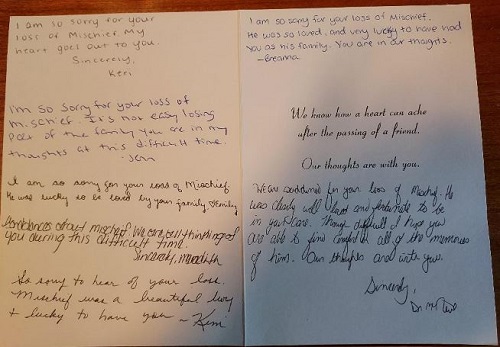 I am so sorry for your
loss of Mischief My
heart goes out to you.
Sincerely,
Keri
I'm so sorry for your loss of
Mischief. It's not easy losing
part of the family you are in my
thoughts at this difficult time.
- Jenn
I am so sorry for your loss of Mischief
He was lucky to be loved by your family. -Emily
Condolences about Mischief We are all thinking of
you during this difficult time.
Sincerely, Meredith
So sorry to hear of your loss.
Mischief was a beautiful boy
+ lucky to have you - Kim
I am so sorry for your loss of Mischief.
He was so loved, and very lucky to have had
you as his family. You are in our thoughts.
- Breanna
We know how a heart can ache
after the passing of a friend.
Our thoughts are with you.
We are saddened for your loss of Mischief. He
was clearly well loved and fortunate to be
in your care. Though difficult I hope you
are able to find comfort in all of the memories
of him. Our thoughts are with you.
Sincerely,
Dr.